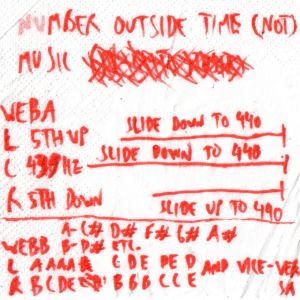 NUMBER OUTSIDE TIME (NOT)
MUSIC
WEBA
L 5TH UP SLIDE DOWN TO 440
C 439HZ SLIDE DOWN TO 440
R 5TH DOWN SLIDE UP TO 440
A-C# D# F# G# A#
WEBB B-D# ETC.
L AAAA C DE DE D AND VICE-VER
R BCDE BBB CCE SA